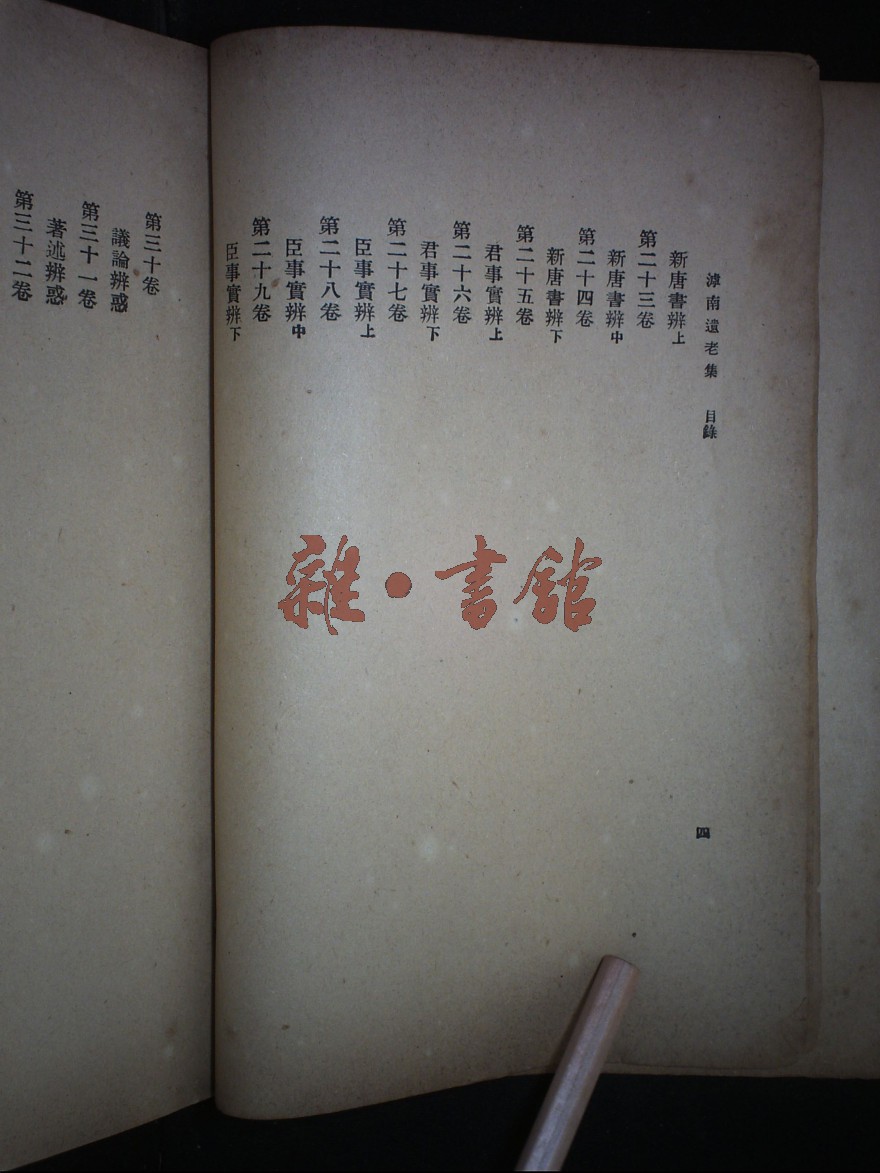 滹南遺老集 目錄
新唐書辨上
第二十三卷
新唐書辨中
第二十四卷
新唐書辨下
第二十五卷
君事實辨上
第二十六卷
君事實辨下
第二十七卷
臣事實辨上
第二十八卷
臣事實辨中
第二十九卷
臣事實辨下
四
第三十卷
議論辨惑
第三十一卷
著述辨惑
第三十二卷
雜·書館